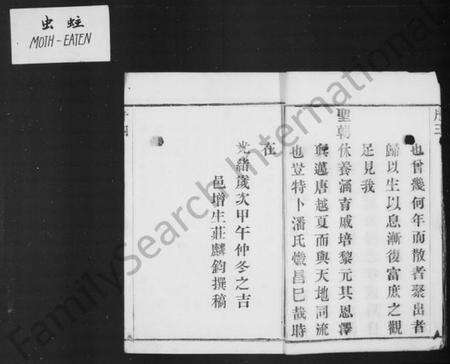 虫蛀
MOTH-EATEN
序三
也曾幾何年而散者聚出者
歸以生以息漸復富庶之觀
足見我
聖朝休養涵育咸培黎元其恩澤
與邁唐越夏而與天地同流
也豈特卜潘氏熾昌已哉時
在
光緒歲次甲午仲冬之吉
邑增生莊麟鈞撰稿
FamilySearch International